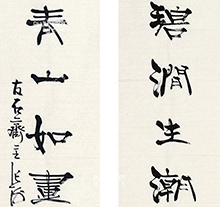 碧澗生潮
青山如畫
古石齋主